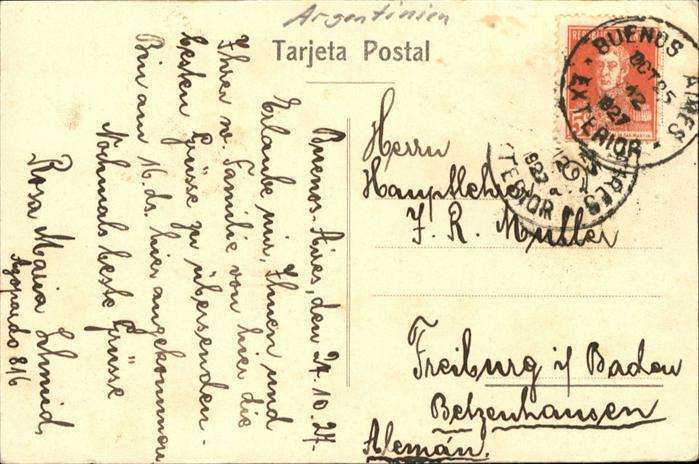 Argentinien
Tarjeta Postal
Buenos-Aires, den 24.10.27.
Erlaube mir, Ihnen und
Ihrer w. Familie von hier die
besten Grüsse zu übersenden-
Bin am 16. ds. hier angekommen
Nochmals beste Grüsse
Rosa Maria Schmid,
Azopardo 816
BUENOS AIRES
OCT 25
12
1927
EXTERIOR
AIRES
1927
EXTERIOR
Herrn
Hauptlehrer
J. R. Müller
Freiburg i/ Baden
Betzenhausen
Alemán.